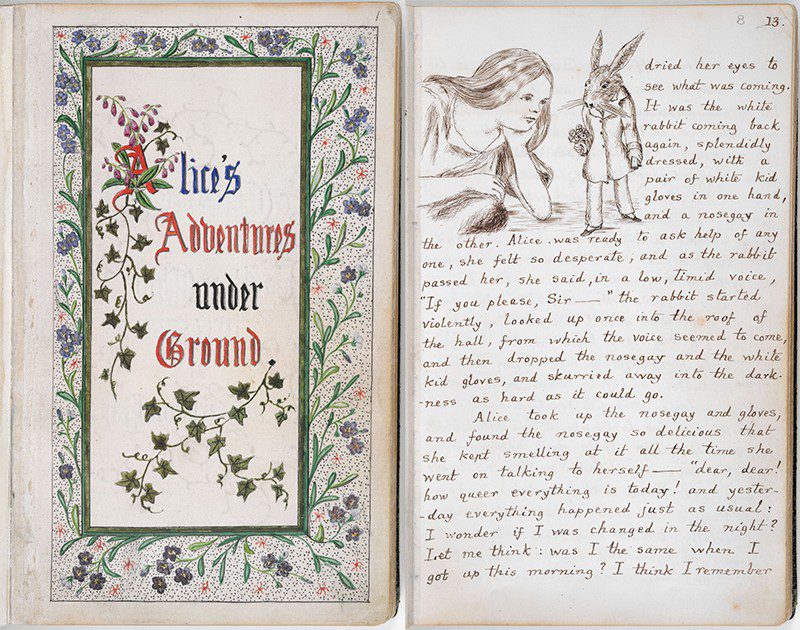 1
Alice's
Adventures
under
Ground
8 13.
dried her eyes to
see what was coming.
It was the white
rabbit coming back
again, splendidly
dressed, with a
pair of white kid
gloves in one hand,
and a nosegay in
the other. Alice was ready to ask help of any
one, she felt so desperate, and as the rabbit
passed her, she said, in a low, timid voice,
"If you please, Sir—" the rabbit started
violently, looked up once into the roof of
the hall, from which the voice seemed to come,
and then dropped the nosegay and the white
kid gloves, and skurried away into the dark-
-ness as hard as it could go.
Alice took up the nosegay and gloves,
and found the nosegay so delicious that
she kept smelling at it all the time she
went on talking to herself— "dear, dear!
how queer everything is today! and yester-
-day everything happened just as usual:
I wonder if I was changed in the night?
Let me think: was I the same when I
got up this morning? I think I remember